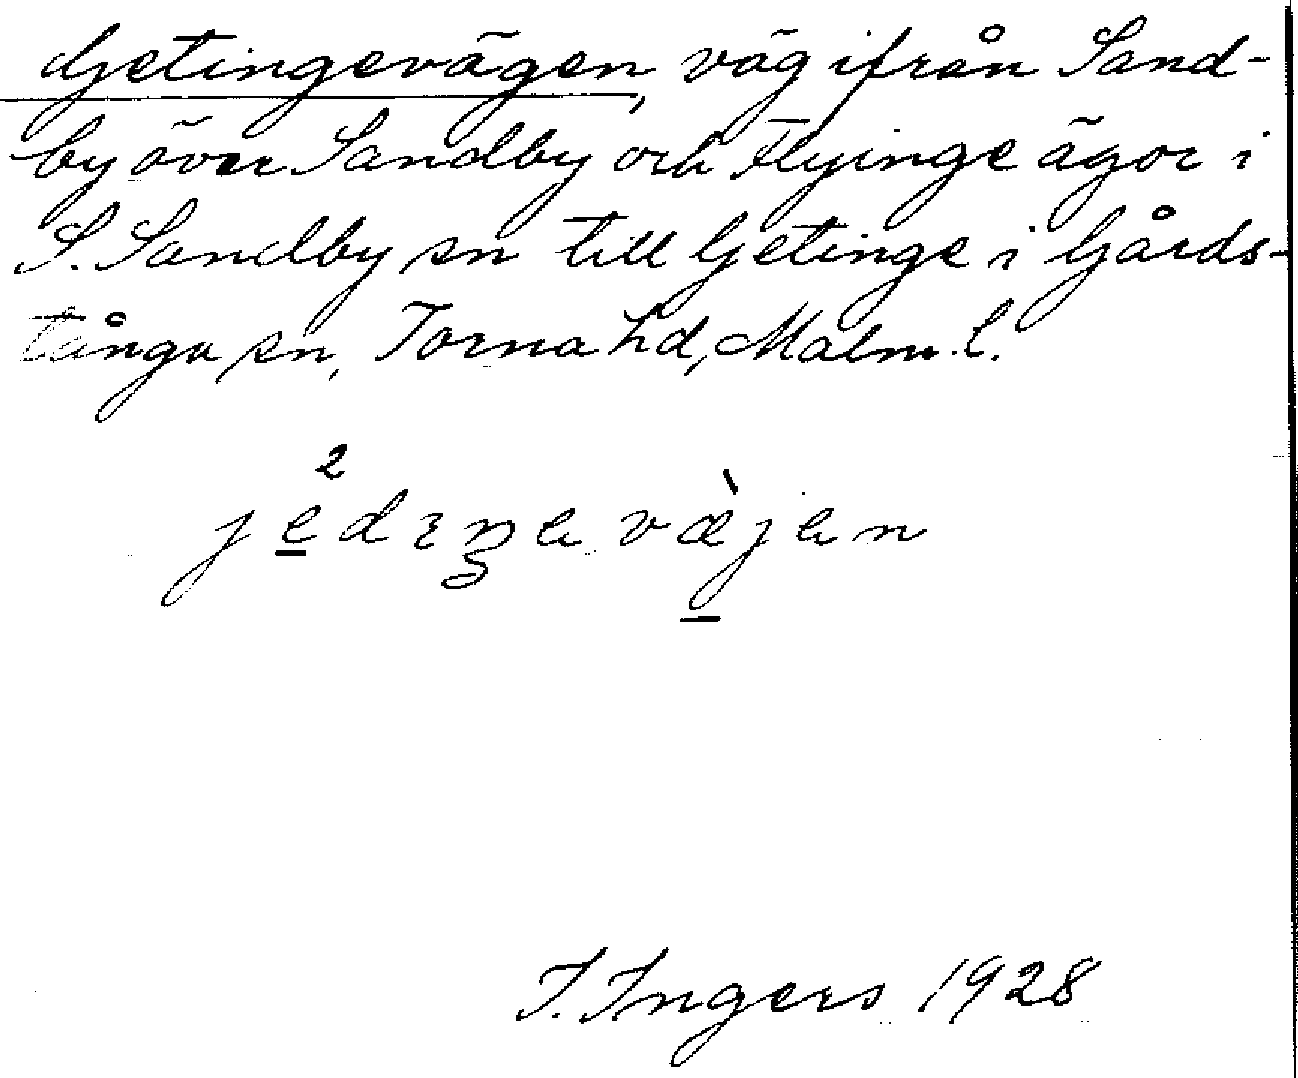 Getingevägen, väg ifrån Sand-
by över Sandby och Flyinge ägor i
S. Sandby sn till Getinge i Gårds-
tånga sn, Torna hd, Malm. l.
2
jedɪŋe væ̀jen
I. Ingers 1928